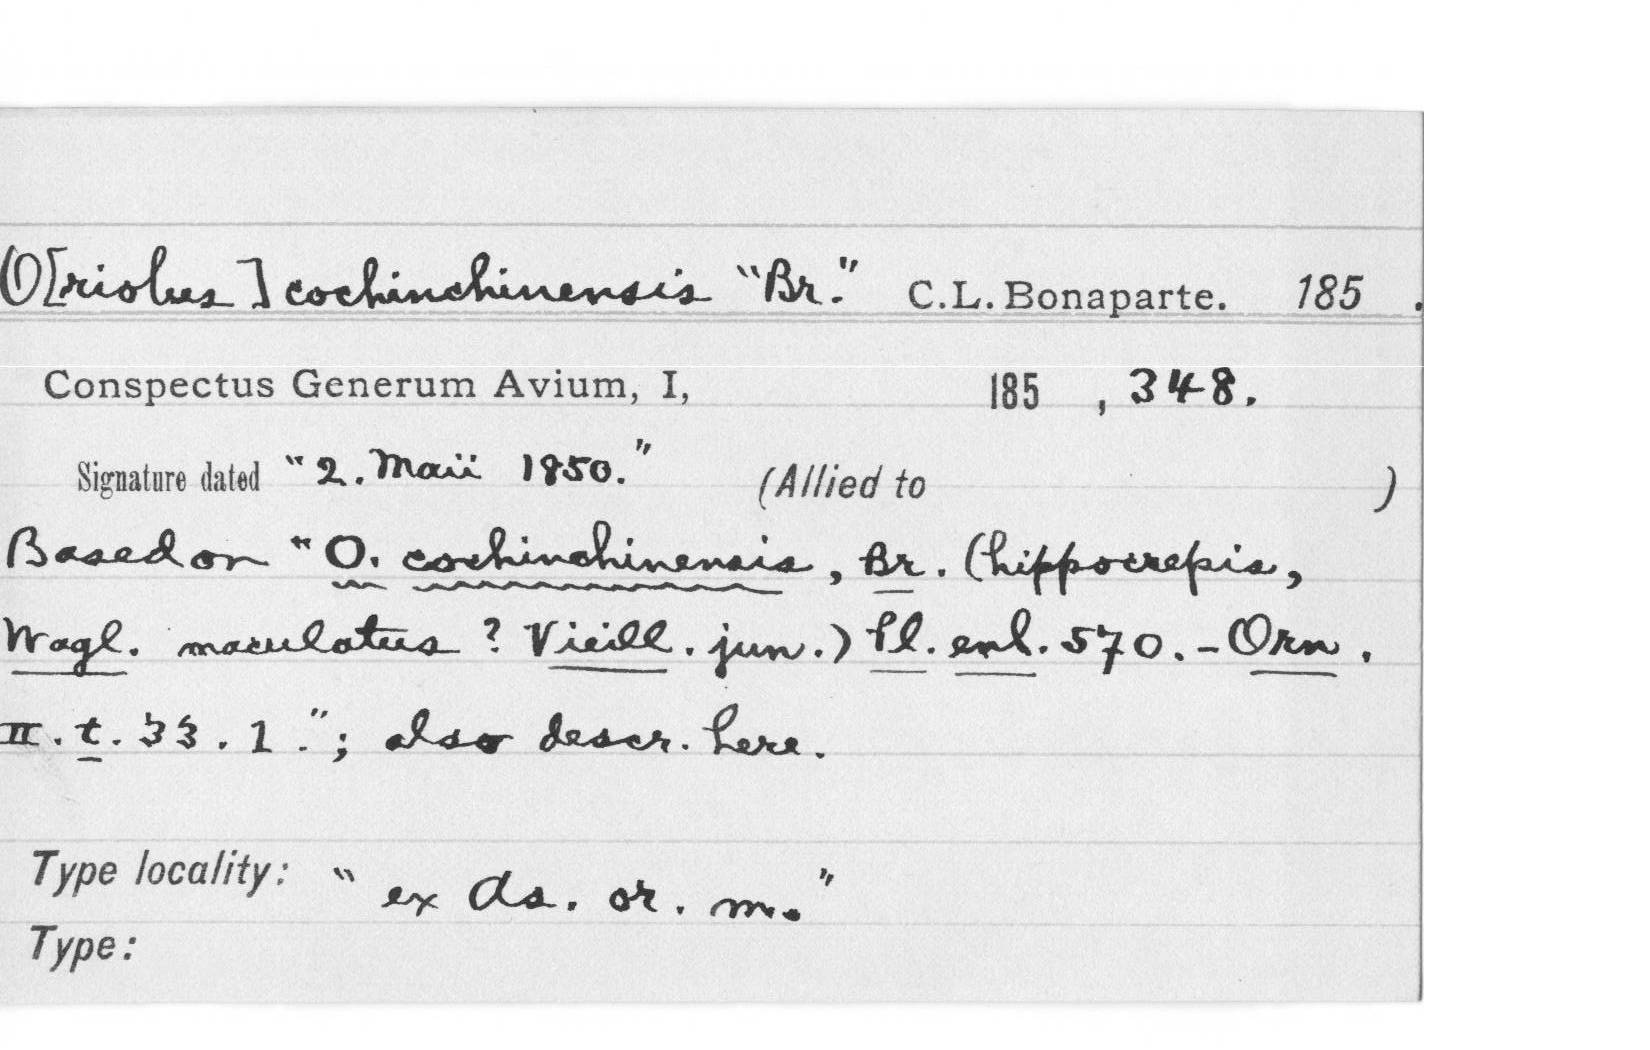 O[riolus] cochinchinensis "Br." C.L. Bonaparte. 185 .
Conspectus Generum Avium, I, 185 , 348.
Signature dated "2. Maii 1850." (Allied to )
Based on "O. cochinchinensis, Br. (hippocrepis,
Wagl. maculatus ? Vieill. jun.) Pl. enl. 570. - Orn.
II. t. 33. 1."; also descr. here.
Type locality: "ex As. or. m."
Type: